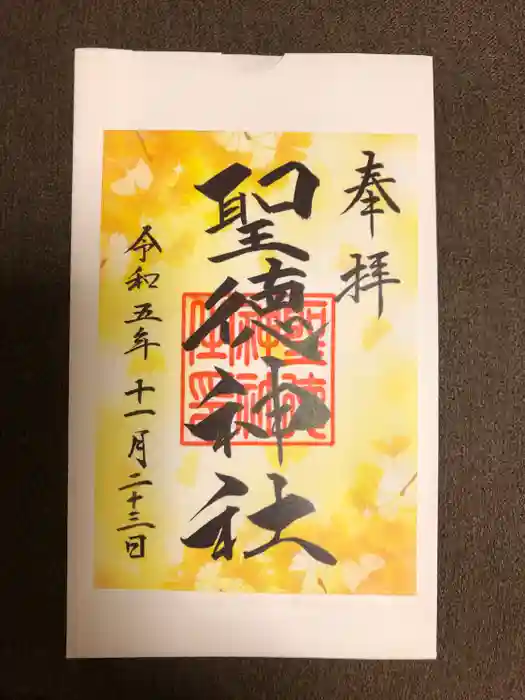 奉拝
聖徳神社
令和五年十一月二十三日